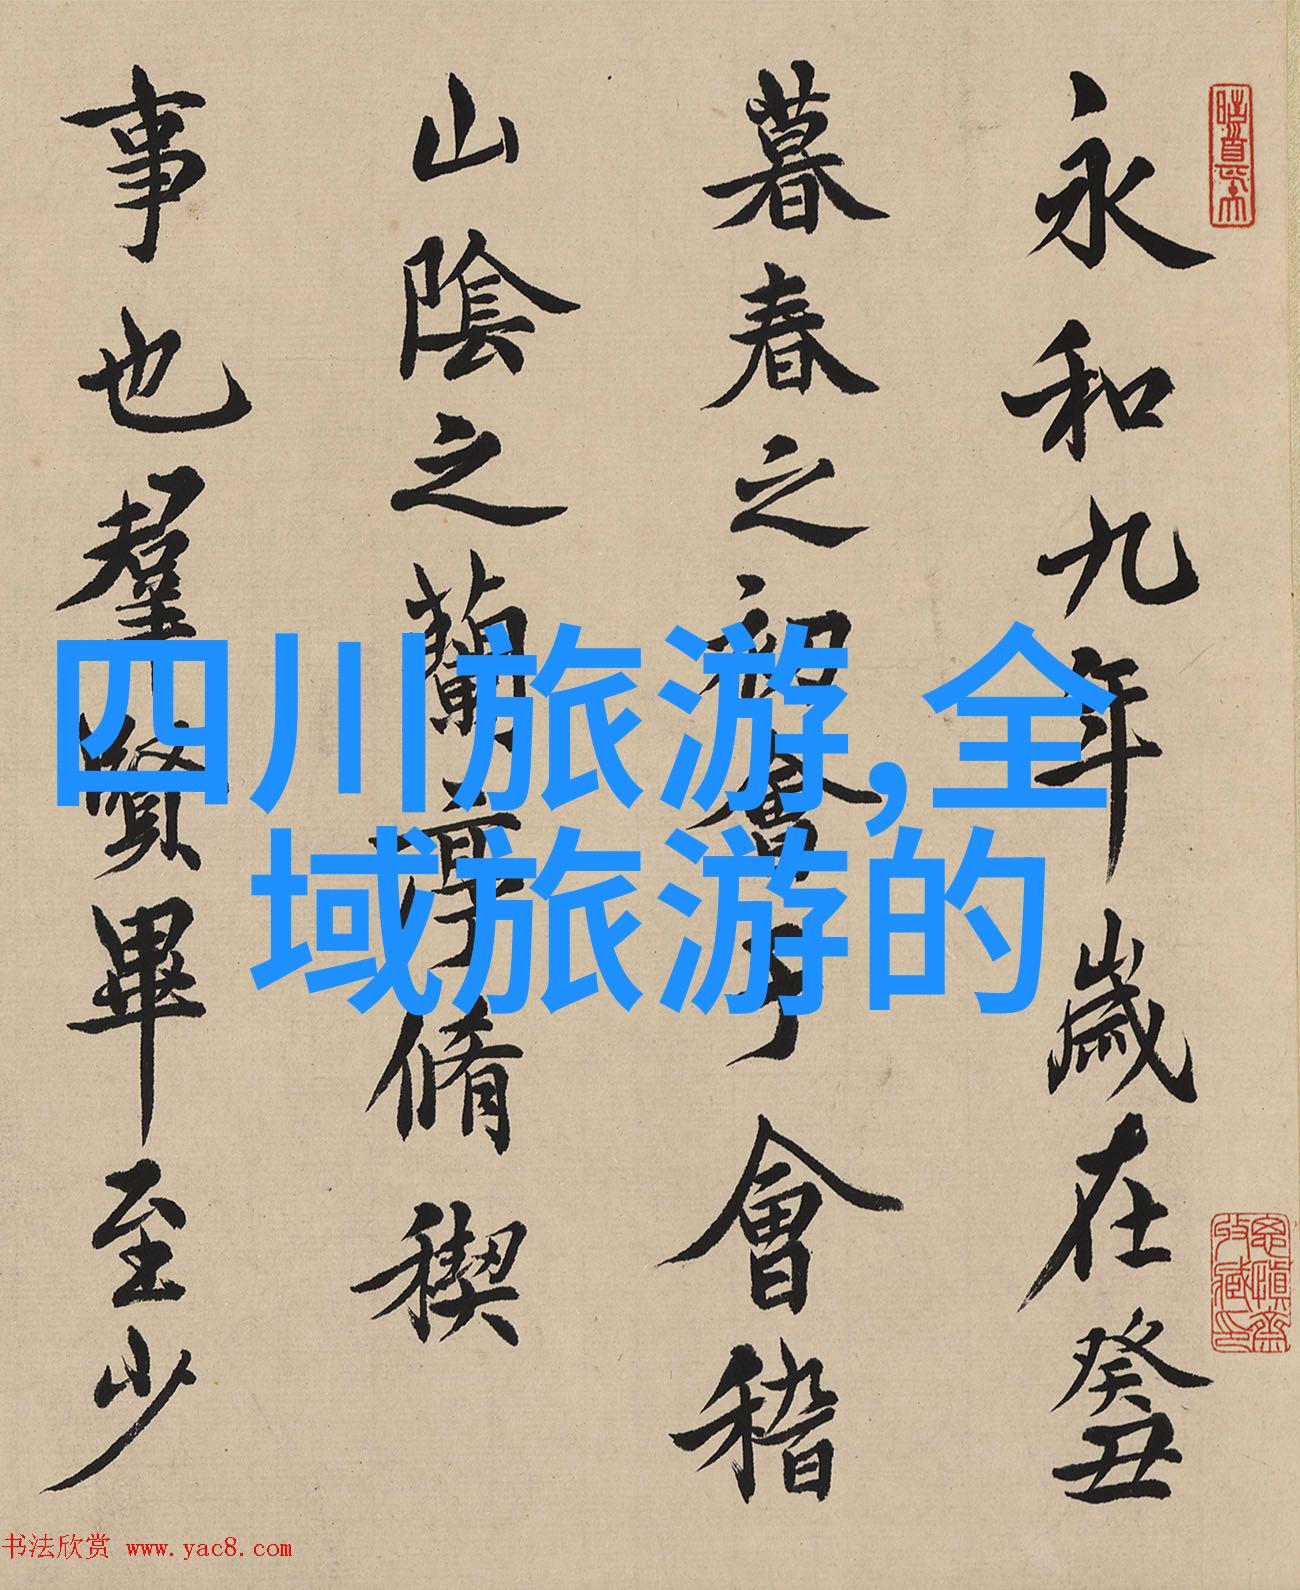 永和九年歲在癸丑
暮春之初會于會稽
山陰之蘭亭脩稧
事也羣賢畢至少
四川旅游,全
域旅游的
书法欣赏 www.yac8.com